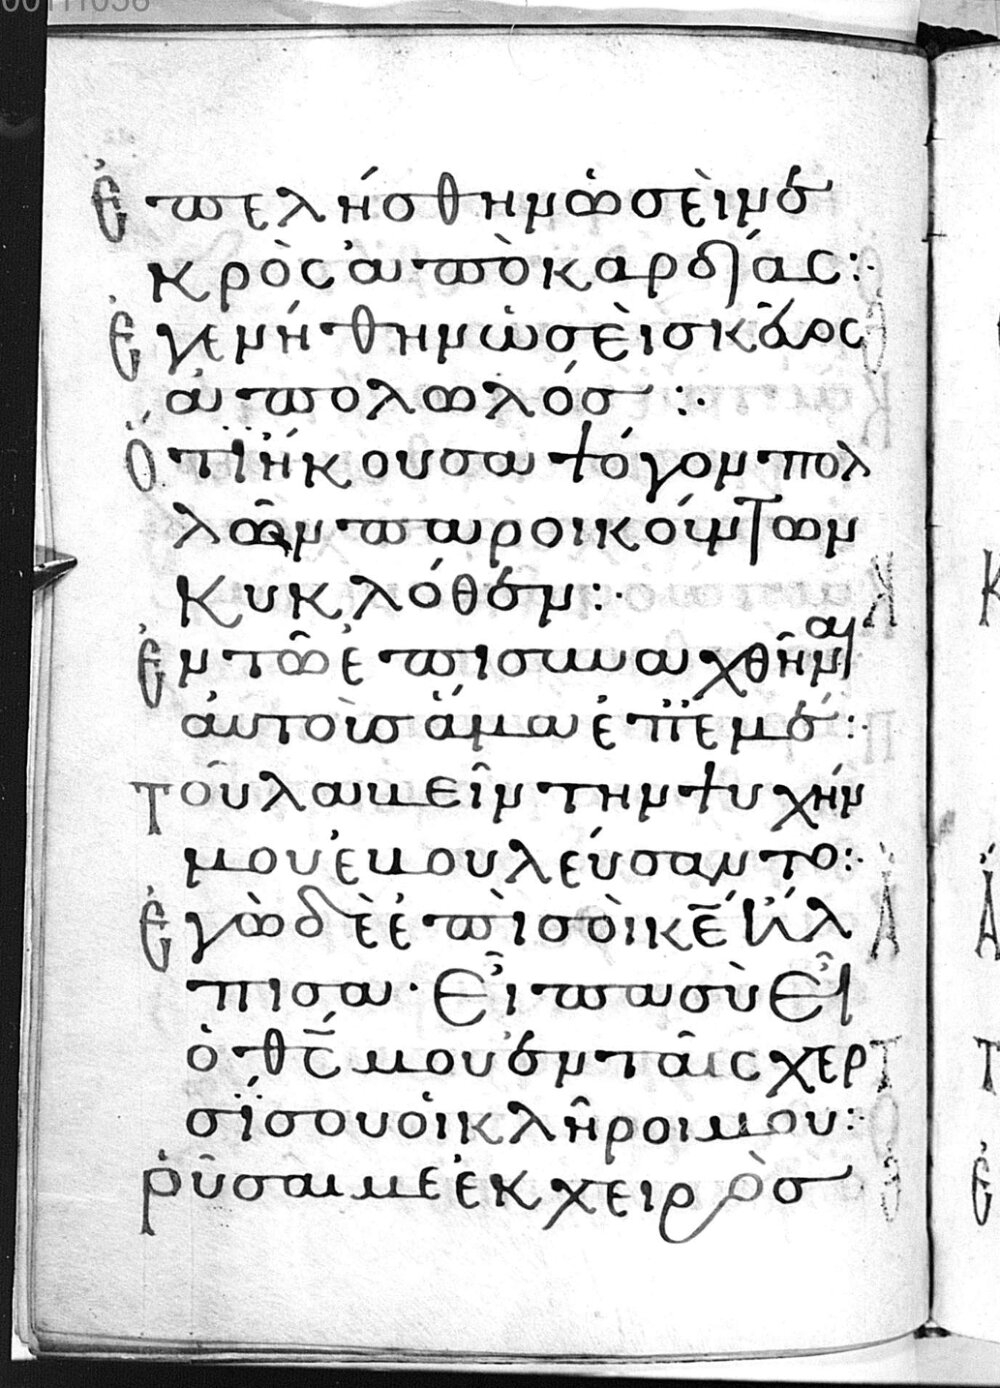 Ἐπελήσθην ὡσεὶ νε
κρὸς ἀπὸ καρδίας:·
Ἐγενήθην ὡσεὶ σκεῦος
ἀπολωλός :·
Ὅτι ἤκουσα ψόγον πολ
λῶν παροικούντων
κυκλόθεν:·
Ἐν τῶ ἐπισυναχθῆναι
αὐτοὺσ ἅμα ἐπ ἐμέ:·
τοῦ λαβεῖν τὴν ψυχήν
μου ἐβουλεύσαντο:·
Ἐγὼ δὲ ἐπὶ σοὶ κ̅ε̅ ἤλ
πισα· Εἶπα σὺ εἶ
ὁ θ̅ς̅ μου ἐν ταῖς χερ
σί σου οἱ κλῆροι μου:·
ῥῦσαι με ἐκ χειρὸσ